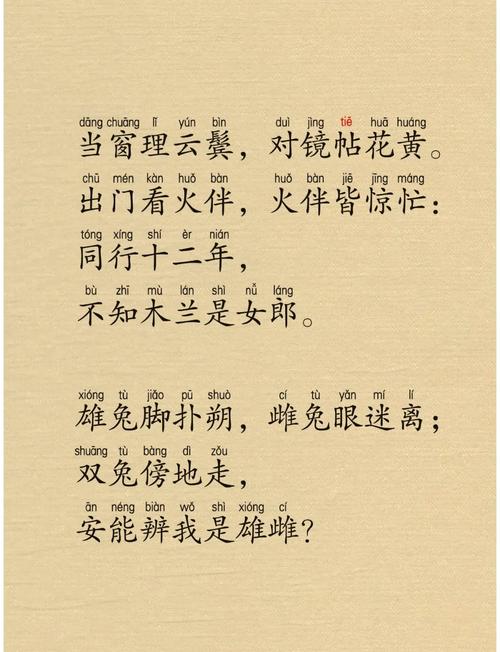 dāng chuāng lǐ yún bìn duì jìng tiē huā huáng
当窗理云鬓，对镜帖花黄。
chū mén kàn huǒ bàn huǒ bàn jiē jīng máng
出门看火伴，火伴皆惊忙：
tóng xíng shí èr nián
同行十二年，
bù zhī mù lán shì nǚ láng
不知木兰是女郎。
xióng tù jiǎo pū shuò cí tù yǎn mí lí
雄兔脚扑朔，雌兔眼迷离；
shuāng tù bàng dì zǒu
双兔傍地走，
ān néng biàn wǒ shì xióng cí
安能辨我是雄雌？